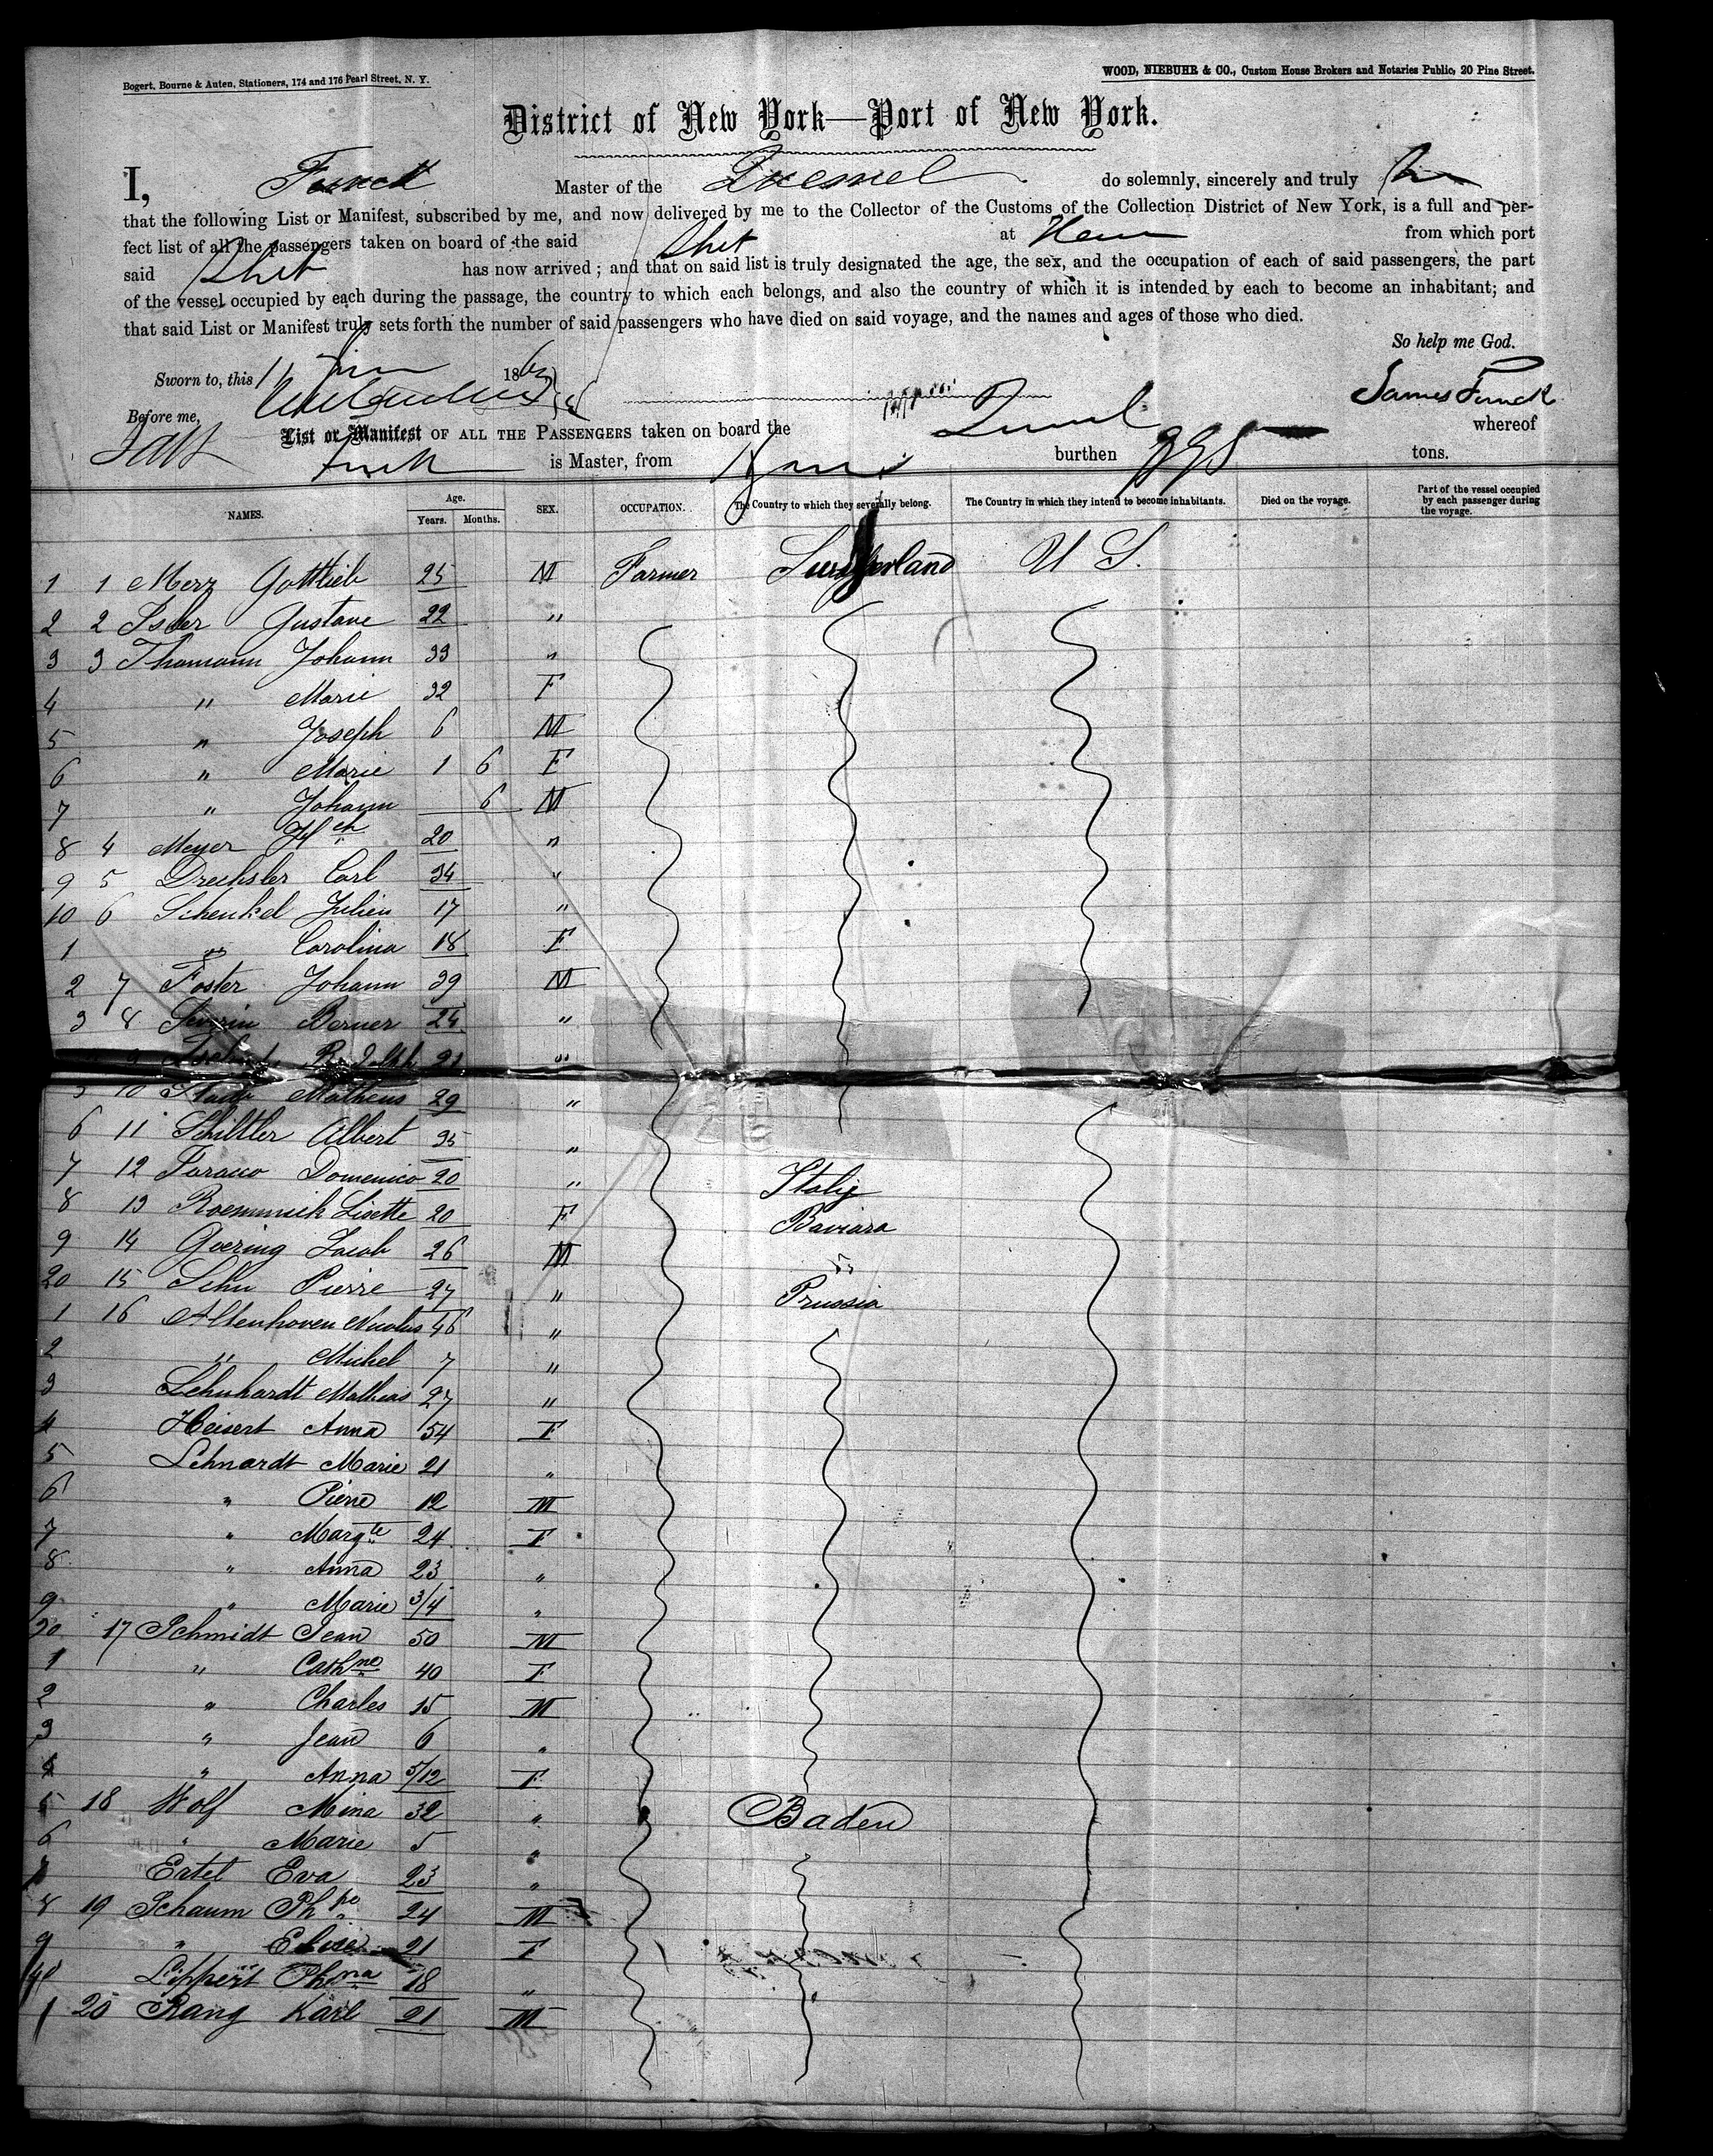 Bogert, Bourne & Auten, Stationers, 174 and 176 Pearl Street, N. Y.
WOOD, NIEBUHR & CO., Custom House Brokers and Notaries Public, 20 Pine Street.
District of New York—Port of New York.
I, Funck Master of the Quesnel do solemnly, sincerely and truly
that the following List or Manifest, subscribed by me, and now delivered by me to the Collector of the Customs of the Collection District of New York, is a full and per-
fect list of all the passengers taken on board of the said Ship at from which port
said Ship has now arrived; and that on said list is truly designated the age, the sex, and the occupation of each of said passengers, the part
of the vessel occupied by each during the passage, the country to which each belongs, and also the country of which it is intended by each to become an inhabitant; and
that said List or Manifest truly sets forth the number of said passengers who have died on said voyage, and the names and ages of those who died.
So help me God.
Sworn to, this 186
Before me,
James Funck
List or Manifest OF ALL THE PASSENGERS taken on board the whereof
is Master, from burthen tons.
NAMES. Age. Years. Months. SEX. OCCUPATION. The Country to which they severally belong. The Country in which they intend to become inhabitants. Died on the voyage. Part of the vessel occupied by each passenger during the voyage.
1 1 Merz Gottlieb 25 M Farmer U S.
2 2 Isler Gustave 22 "
3 3 Thomann Johann 33 "
4 " Marie 32 F
5 " Joseph 6 M
6 " Marie 1 6 F
7 " Johann 6 M
8 4 Meyer Hch 20 "
9 5 Drechsler Carl 34 "
10 6 Schenkel Julien 17 "
1 " Carolina 18 F
2 7 Foster Johann 39 M
3 8 Severin Berner 24 "
9 Rudolph 21 "
5 10 Matheus 29 "
6 11 Schiltler Albert 35 "
7 12 Domenico 20 " Italy
8 13 Roemmich Lisette 20 F Baviara
9 14 Goering Jacob 26 M "
20 15 Sehn Pierre 27 " Prussia
1 16 Altenhoven Nicolas 46 "
2 " Michel 7 "
3 Lehnhardt Mathias 27 "
4 Heisert Anna 54 F
5 Lehnardt Marie 21 "
6 " Pierre 12 M
7 " Margte 24 F
8 " Anna 23 "
9 " Marie 3/4 "
30 17 Schmidt Jean 50 M
1 " Cathne 40 F
2 " Charles 15 M
3 " Jean 6 "
4 " Anna 5/12 F
5 18 Wolf Mina 32 " Baden
6 " Marie 5 "
7 Ertel Eva 23 "
8 19 Schaum Phpe 24 M
9 " Elise 21 F
40 Lippert Phna 18 "
1 20 Rang Karl 21 M